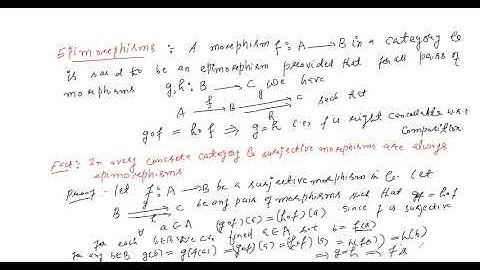 Epimorphisms : A morphism f : A → B in a category C
is said to be an epimorphism provided that for all pairs of
morphisms g, h : B → C we have
A —f→ B ⇉ C such that
g
h
g∘f = h∘f ⇒ g = h i.e. f is right cancelable w.r.t
Composition
Fact: In every concrete category C surjective morphisms are always
epimorphisms
Proof - Let f : A → B be a surjective morphism in C. Let
B ⇉ C be any pair of morphisms such that g∘f = h∘f
for each a ∈ A (g∘f)(a) = (h∘f)(a) Since f is surjective
for any b ∈ B we can find a ∈ A s.t b = f(a)
g(b) = g(f(a)) = (g∘f)(a) = (h∘f)(a) = h(f(a)) = h(b)
⇒ g = h ⇒ f is